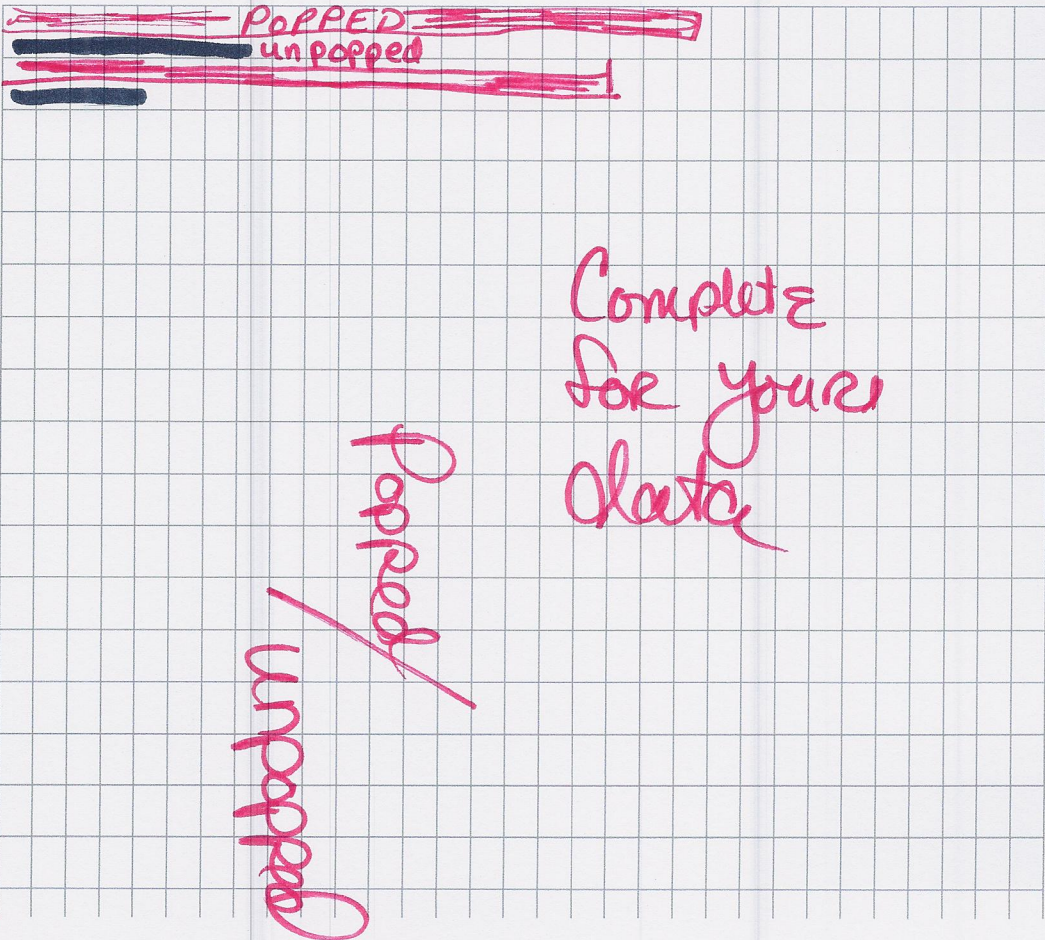 POPPED
unpopped
Complete
for your
data
Popped/
unpopped